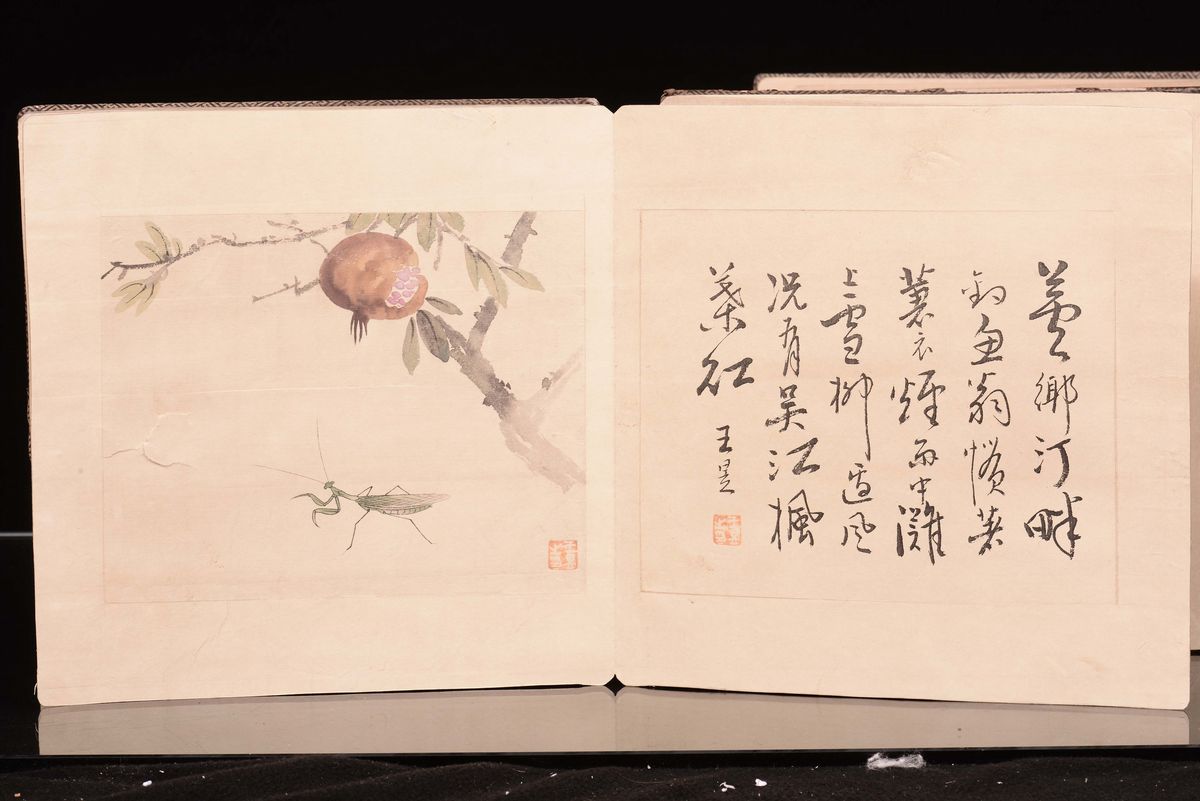 蘆鄉汀畔
釣魚翁慣著
蓑衣煙雨中灘
上雪柳邊風
況有吳江楓
葉紅
王昱